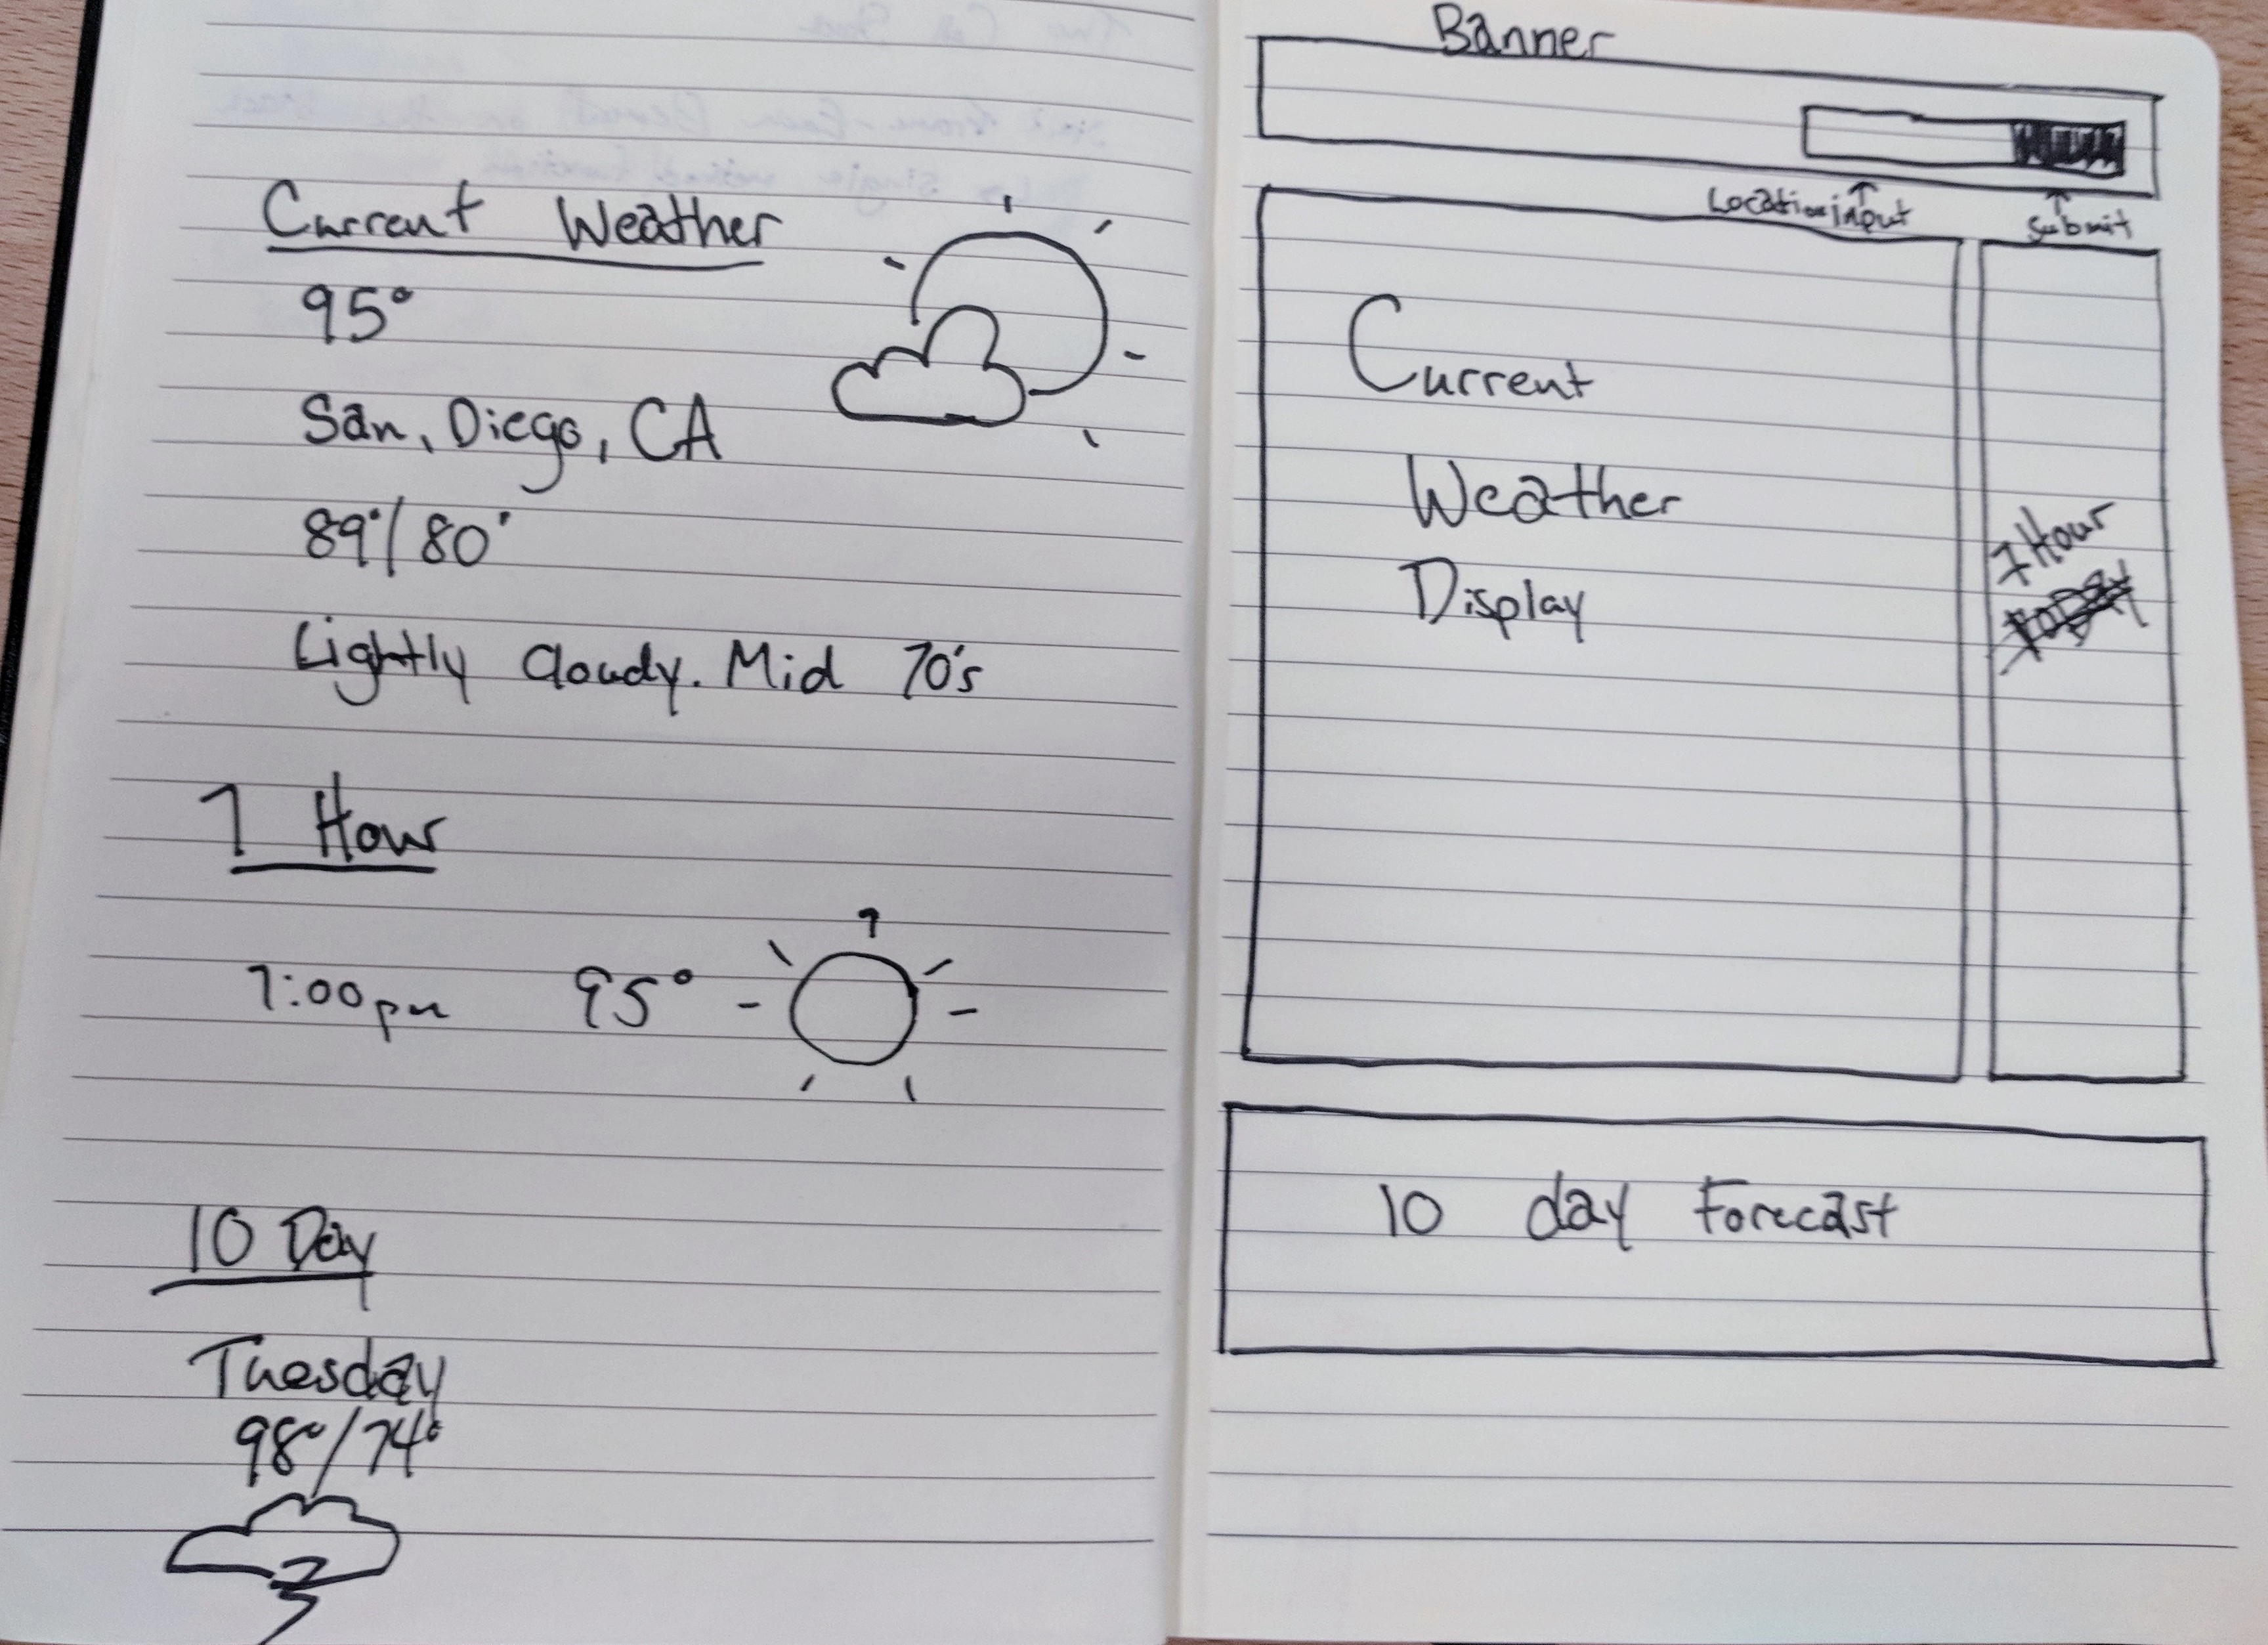 Current Weather
95°
San, Diego, CA
89°/80°
Lightly Cloudy. Mid 70's
7 Hour
7:00pm 95°
10 Day
Tuesday
98°/74°
Banner
Location input
Submit
Current
Weather
Display
7 Hour
10 day Forecast